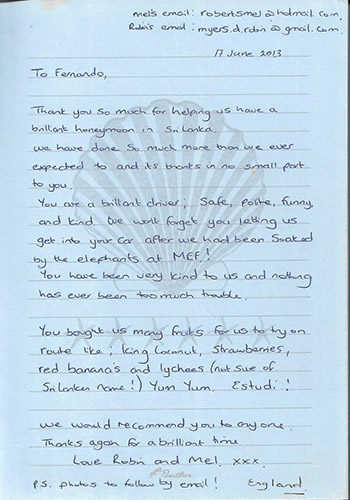 Mel's email: robertsmel@hotmail.com.
Robin's email: myers.d.robin@gmail.com.
17 June 2013
To Fernando,
Thank you so much for helping us have a
brillant honeymoon in Sri Lanka.
We have done so much more than we ever
expected to and its thanks in no small part
to you.
You are a brilliant driver; Safe, polite, funny,
and kind. We wont forget you letting us
get into your car after we had been soaked
by the elephants at MEF!
You have been very kind to us and nothing
has ever been too much trouble.
You bought us many fruits for us to try on
route like; King Coconut, Strawberries,
red banana's and lychees (not sure of
Sri Lanken name!) Yum Yum. Estudi!
We would recommend you to any one.
Thanks again for a brilliant time.
Love Robin and Mel. xxx.
P.S. photos to follow by email! England